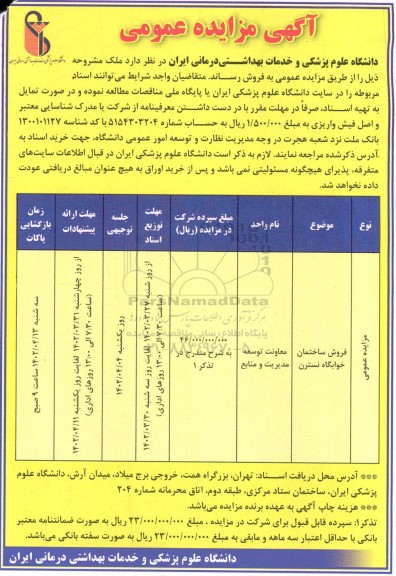 آگهی مزایده عمومی
دانشگاه علوم پزشکی و خدمات بهداشتی‌درمانی ایران در نظر دارد ملک مشروحه
ذیل را از طریق مزایده عمومی به فروش رساند. متقاضیان واجد شرایط می‌توانند اسناد
مربوطه را در سایت دانشگاه علوم پزشکی ایران یا پایگاه ملی مناقصات مطالعه نموده و در صورت تمایل
به تهیه اسناد، صرفاً در مهلت مقرر با در دست داشتن معرفینامه از شرکت یا مدرک شناسایی معتبر
و اصل فیش واریزی به مبلغ ۱/۵۰۰/۰۰۰ ریال به حساب شماره ۵۱۵۴۳۰۳۲۰۴ با کد شناسه ۱۳۰۰۱۰۱۱۲۷
بانک ملت نزد شعبه هجرت در وجه مدیریت نظارت و توسعه امور عمومی دانشگاه، جهت خرید اسناد به
آدرس ذکرشده مراجعه نمایند. لازم به ذکر است دانشگاه علوم پزشکی ایران در قبال اطلاعات سایت‌های
متفرقه، پذیرای هیچگونه مسئولیتی نمی باشد و پس از خرید اوراق به هیچ عنوان مبالغ دریافتی عودت
داده نخواهد شد.
نوع
موضوع
نام واحد
مبلغ سپرده شرکت در مزایده (ریال)
مهلت توزیع اسناد
جلسه توجیهی
مهلت ارائه پیشنهادات
زمان بازگشایی پاکات
مزایده عمومی
فروش ساختمان خوابگاه نسترن
معاونت توسعه مدیریت و منابع
۴۶/۰۰۰/۰۰۰/۰۰۰ به شرح مندرج در تذکر ۱
از روز شنبه ۱۴۰۲/۰۳/۲۷ لغایت روز سه شنبه ۱۴۰۲/۰۳/۳۰
(ساعت ۷:۳۰ الی ۱۳:۰۰ روزهای اداری)
روز یکشنبه ۱۴۰۲/۰۴/۰۴
از روز چهارشنبه ۱۴۰۲/۰۳/۳۱ لغایت روز یکشنبه ۱۴۰۲/۰۴/۱۱
(ساعت ۷:۳۰ الی ۱۳:۰۰ روزهای اداری)
سه شنبه ۱۴۰۲/۰۴/۱۳ ساعت ۹ صبح
ParsNamadData
پایگاه اطلاع رسانی مناقصه و مزایده
۰۲۱-۸۸۳۴۹۶۷۰-۵
*** آدرس محل دریافت اسناد: تهران، بزرگراه همت، خروجی برج میلاد، میدان آرش، دانشگاه علوم
پزشکی ایران، ساختمان ستاد مرکزی، طبقه دوم، اتاق محرمانه شماره ۲۰۴
*** هزینه چاپ آگهی به عهده برنده مزایده می‌باشد.
تذکر۱: سپرده قابل قبول برای شرکت در مزایده ، مبلغ ۲۳/۰۰۰/۰۰۰/۰۰۰ ریال به صورت ضمانتنامه معتبر
بانکی با حداقل اعتبار سه ماهه و مابقی به مبلغ ۲۳/۰۰۰/۰۰۰/۰۰۰ ریال به صورت سفته بانکی می‌باشد.
دانشگاه علوم پزشکی و خدمات بهداشتی درمانی ایران